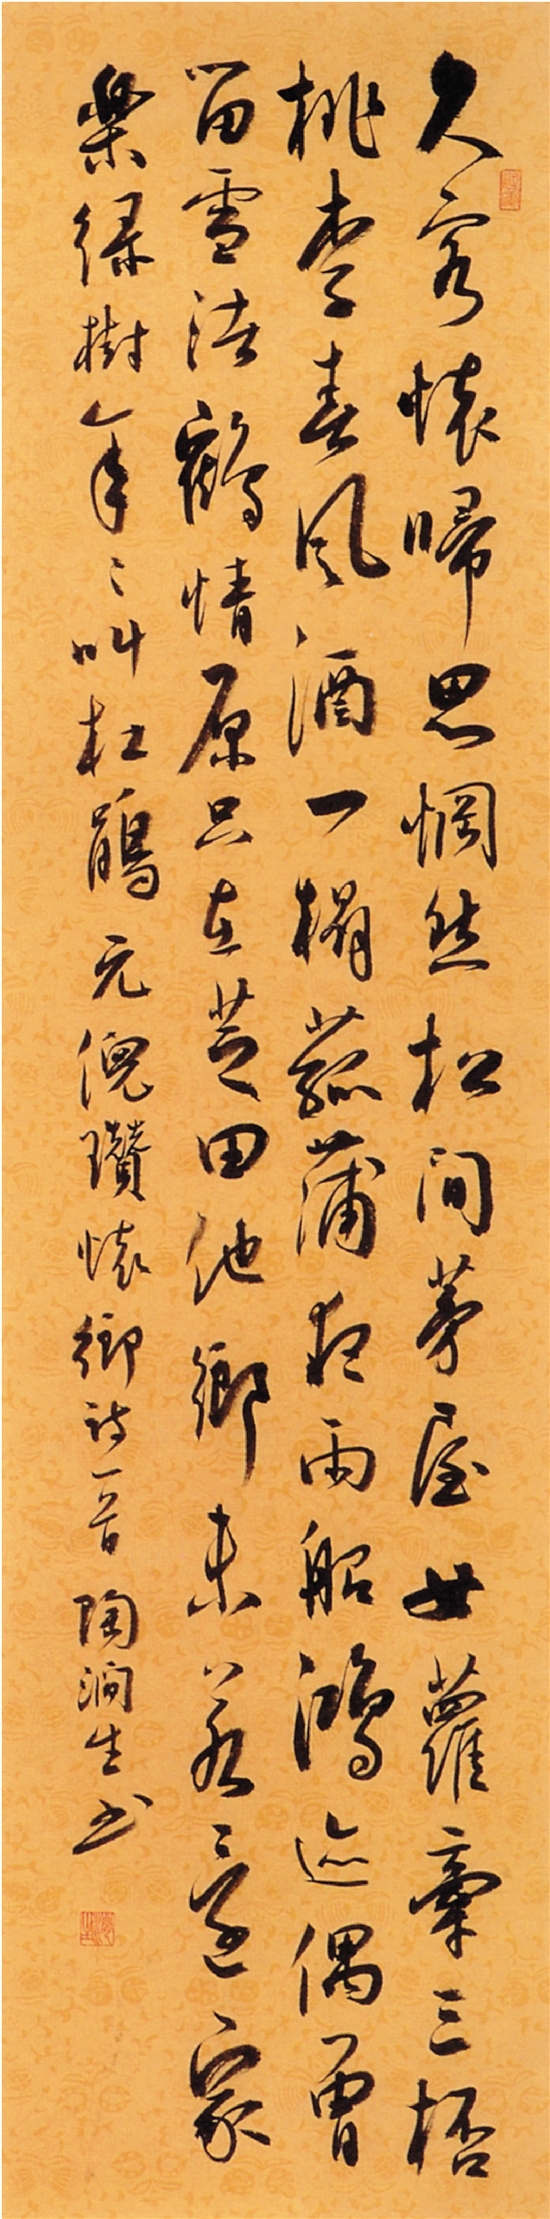 久客懷歸思惘然松間茅屋女蘿牽三杯
桃李春風酒一榻菰蒲夜雨船鴻迹偶曾
留雪渚鶴情原只在芝田他鄉未若還家
樂綠樹年〻叫杜鵑元倪瓚懷鄉詩一首陶澗生书